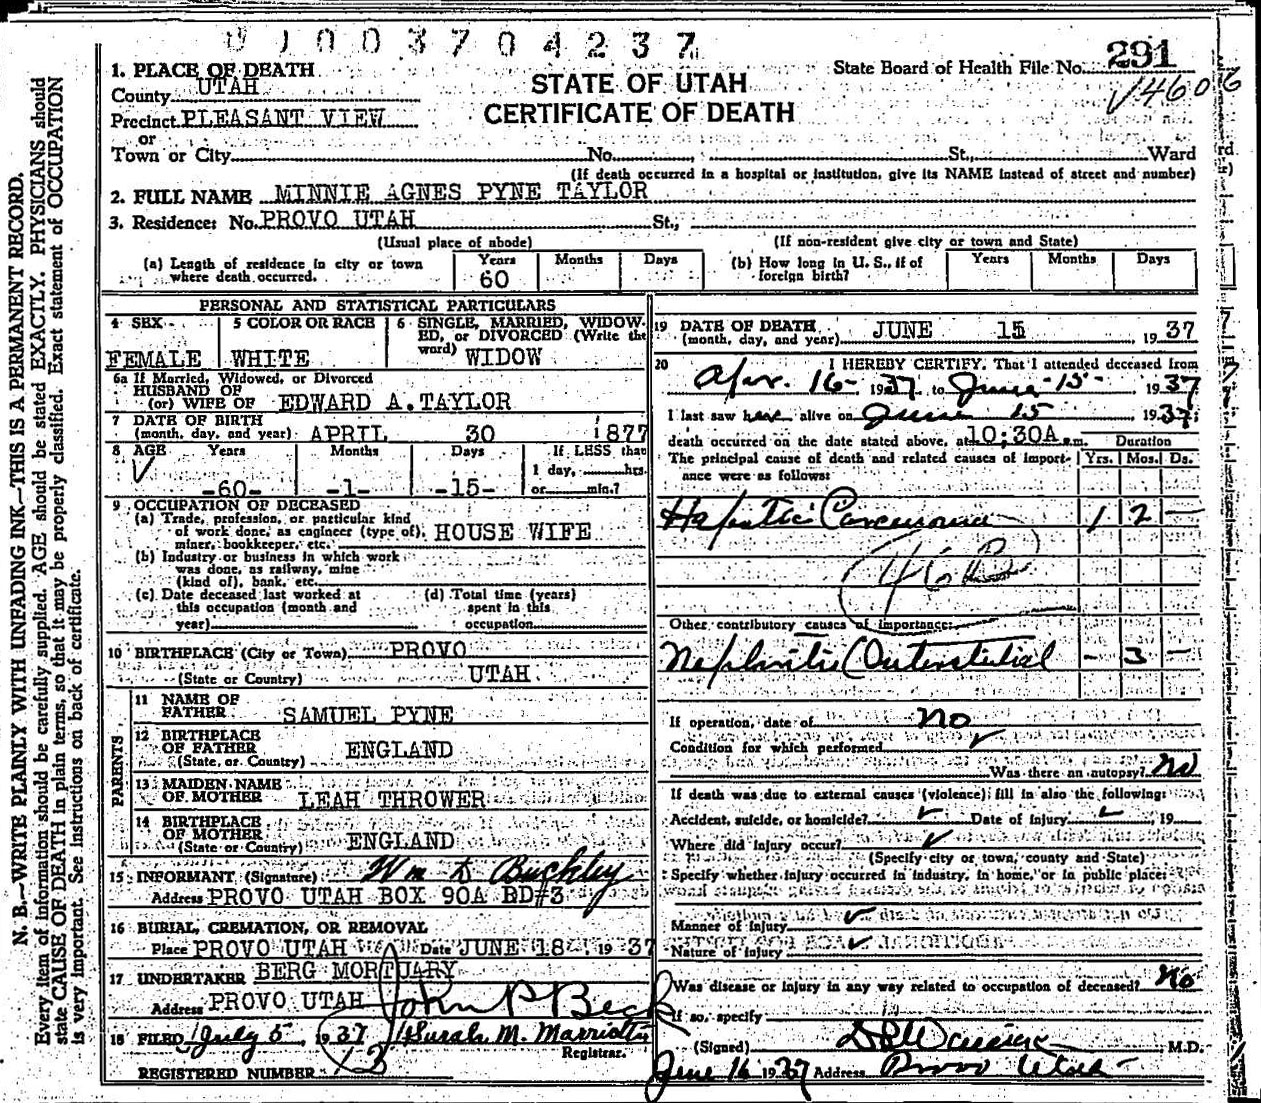 0 1 0 0 3 7 0 4 2 3 7
State Board of Health File No. 291
STATE OF UTAH
CERTIFICATE OF DEATH
1. PLACE OF DEATH
County UTAH
Precinct PLEASANT VIEW
or
Town or City No. St., Ward
(If death occurred in a hospital or institution, give its NAME instead of street and number)
2. FULL NAME MINNIE AGNES PYNE TAYLOR
3. Residence: No. PROVO UTAH St.,
(Usual place of abode) (If non-resident give city or town and State)
(a) Length of residence in city or town where death occurred. Years 60 Months Days
(b) How long in U. S., if of foreign birth? Years Months Days
PERSONAL AND STATISTICAL PARTICULARS
4 SEX FEMALE
5 COLOR OR RACE WHITE
6 SINGLE, MARRIED, WIDOWED, or DIVORCED (Write the word) WIDOW
6a If Married, Widowed, or Divorced
HUSBAND OF
(or) WIFE OF EDWARD A. TAYLOR
7 DATE OF BIRTH
(month, day, and year) APRIL 30 1877
8 AGE Years Months Days If LESS than
1 day, hrs.
-60- -1- -15- or min.?
9 OCCUPATION OF DECEASED
(a) Trade, profession, or particular kind
of work done, as engineer (type of), HOUSE WIFE
miner, bookkeeper, etc.
(b) Industry or business in which work
was done, as railway, mine
(kind of), bank, etc.
(c) Date deceased last worked at
this occupation (month and
year)
(d) Total time (years)
spent in this
occupation
10 BIRTHPLACE (City or Town) PROVO
(State or Country) UTAH
PARENTS
11 NAME OF
FATHER SAMUEL PYNE
12 BIRTHPLACE
OF FATHER ENGLAND
(State or Country)
13 MAIDEN NAME
OF MOTHER LEAH THROWER
14 BIRTHPLACE
OF MOTHER
(State or Country) ENGLAND
15 INFORMANT (Signature) Wm D Buckley
Address PROVO UTAH BOX 90A RD#3
16 BURIAL, CREMATION, OR REMOVAL
Place PROVO UTAH Date JUNE 18 1937
17 UNDERTAKER BERG MORTUARY
Address PROVO UTAH John P Beck
18 FILED July 5, 1937 Sarah M. Marriott
Registrar.
REGISTERED NUMBER
19 DATE OF DEATH JUNE 15 1937
(month, day, and year)
20 I HEREBY CERTIFY, That I attended deceased from
Apr. 16- 1937 to June-15- 1937
I last saw her alive on June 15 1937
death occurred on the date stated above, at 10:30A m.
Duration
The principal cause of death and related causes of importance were as follows: Yrs. Mos. Ds.
Hepatic Carcinoma 1 2 —
46B
Other contributory causes of importance:
Nephritis (Interstitial - 3 -
If operation, date of no
Condition for which performed
Was there an autopsy? No
If death was due to external causes (violence) fill in also the following:
Accident, suicide, or homicide? Date of injury , 19
Where did injury occur?
(Specify city or town, county and State)
Specify whether injury occurred in industry, in home, or in public place:
Manner of injury
Nature of injury
Was disease or injury in any way related to occupation of deceased? No
If so, specify
(Signed) M.D.
June 16 1937 Address Provo Utah
N. B.—WRITE PLAINLY WITH UNFADING INK—THIS IS A PERMANENT RECORD.
Every item of information should be carefully supplied. AGE should be stated EXACTLY. PHYSICIANS should
state CAUSE OF DEATH in plain terms, so that it may be properly classified. Exact statement of OCCUPATION
is very important. See instructions on back of certificate.